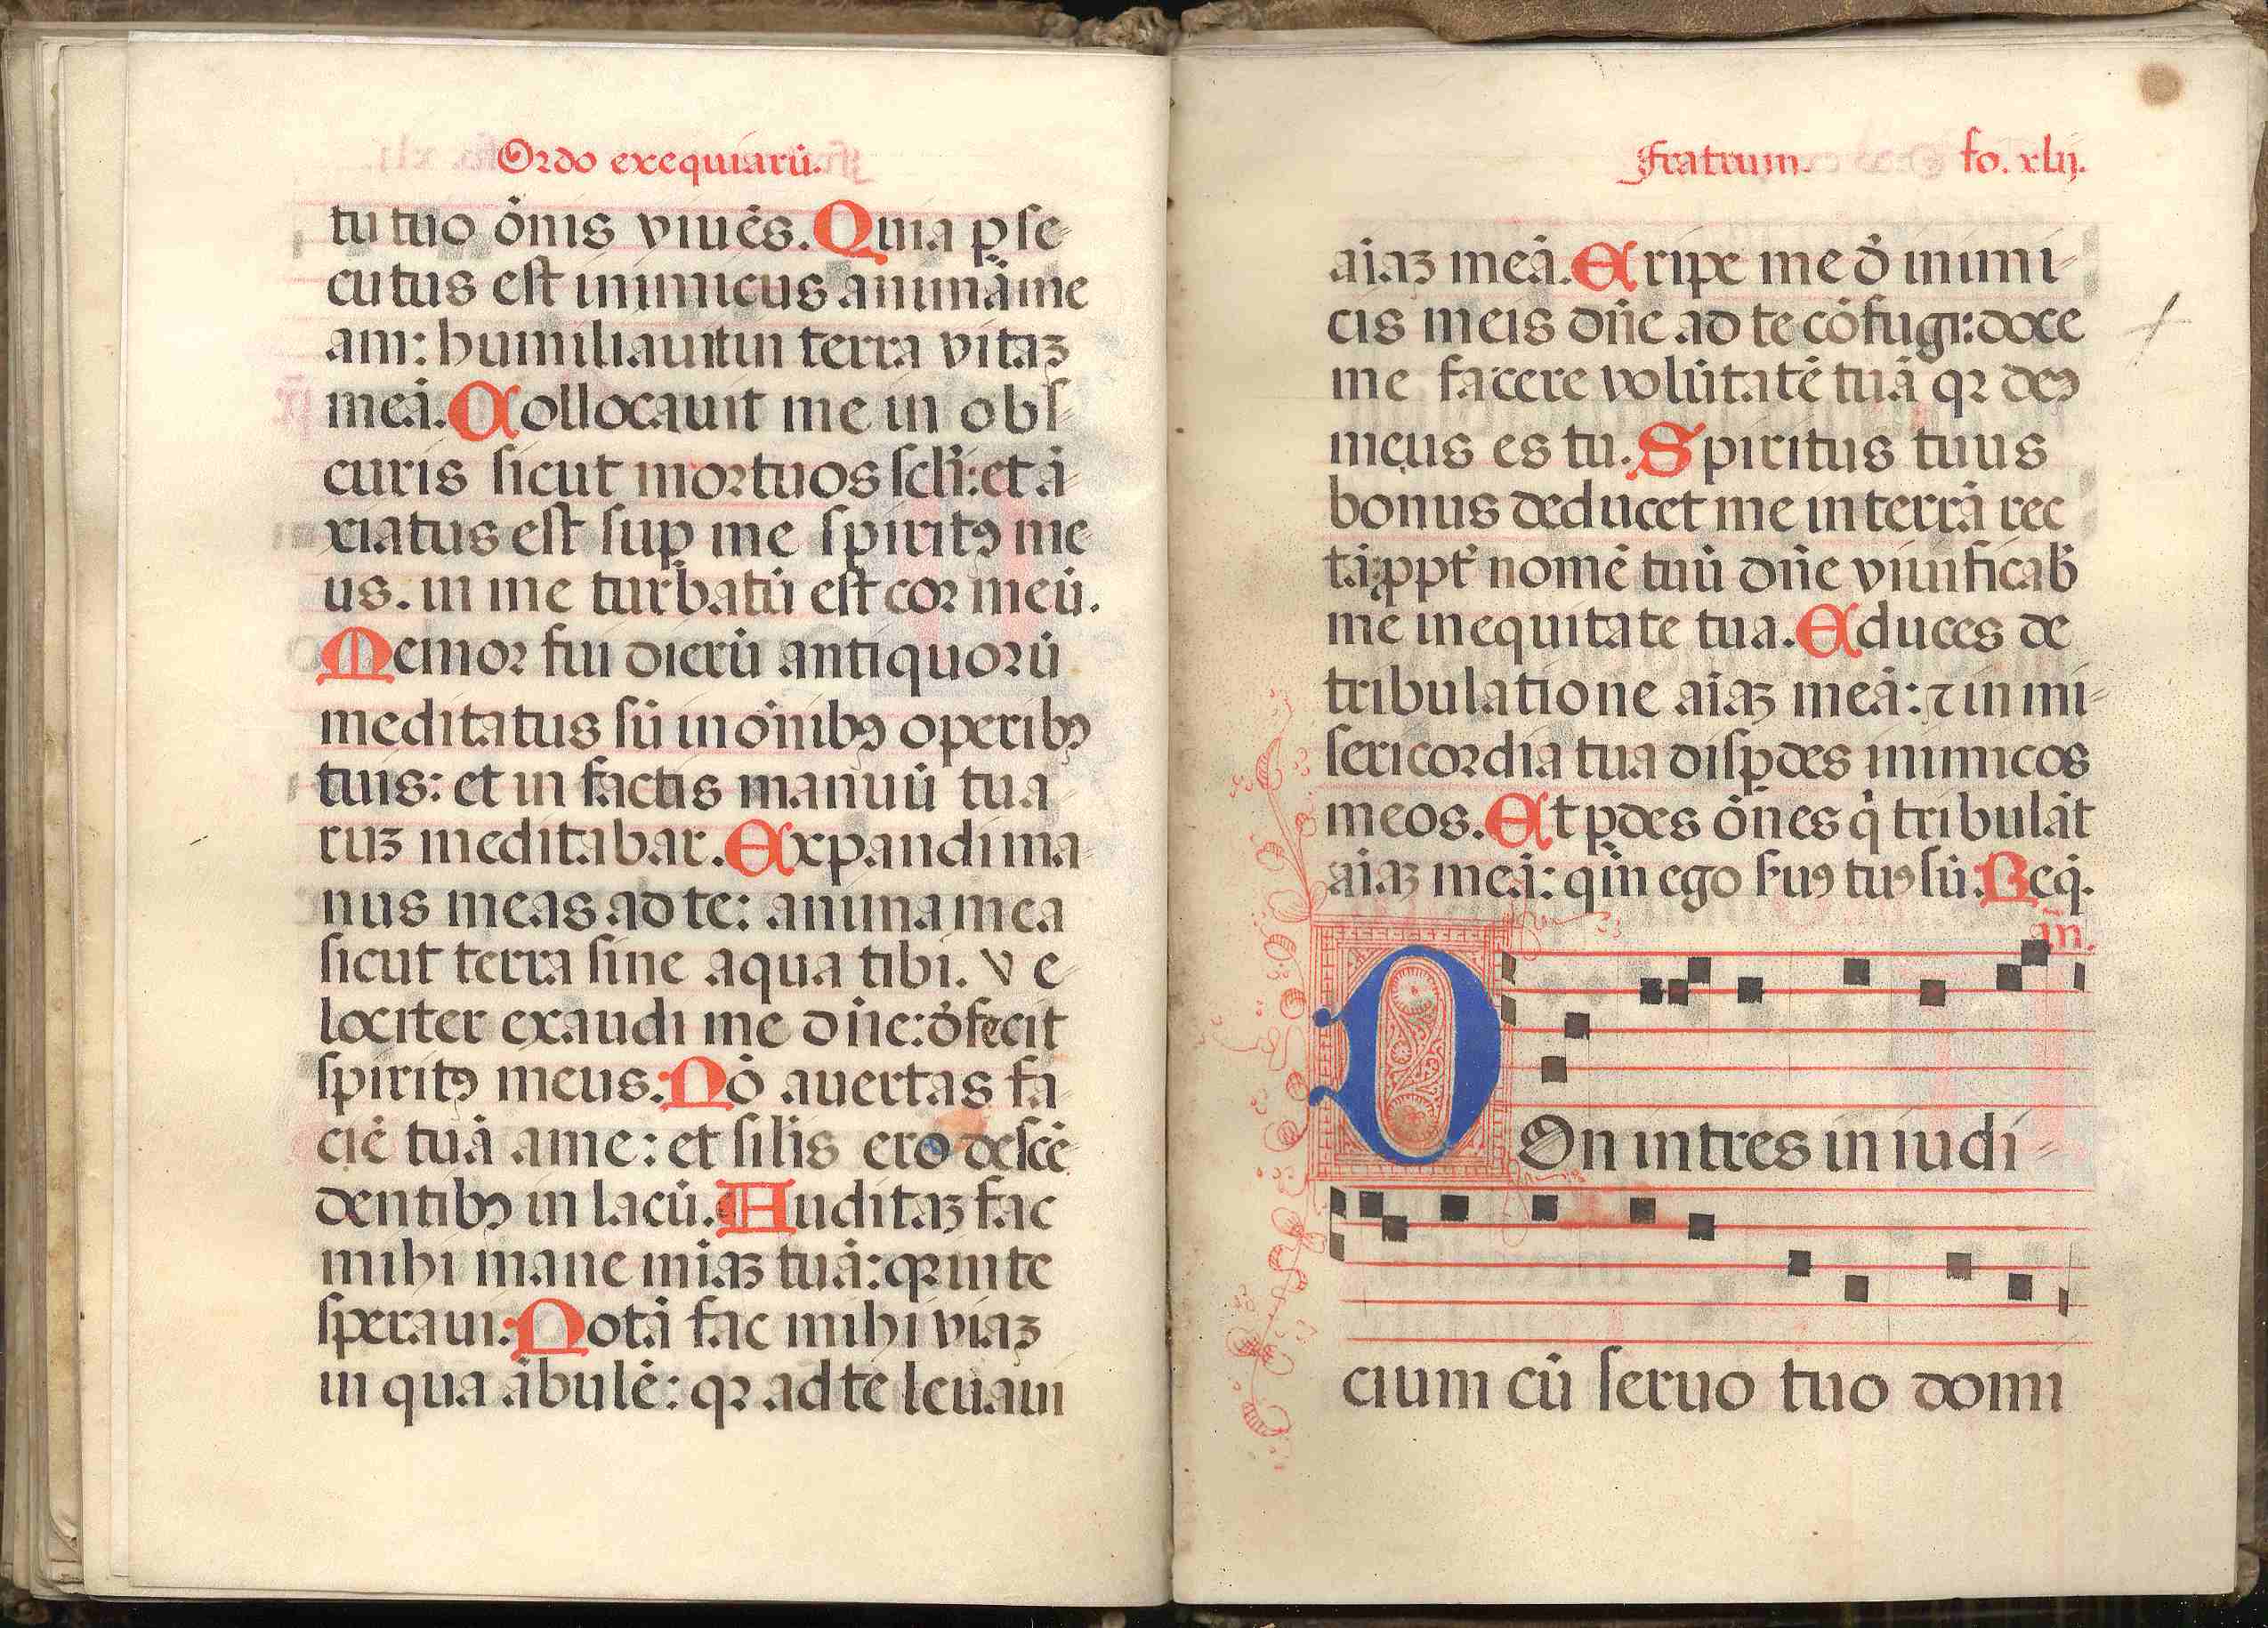 Ordo exequiarū.
tu tuo ōnis viuēs. Quia ꝑſe-
cutus eſt inimicus animā me
am: humiliauit in terra vitaꝫ
meā. Collocauit me in obſ-
curis ſicut mortuos ſcl̄i: et ā-
xiatus eſt ſuꝑ me ſpiritꝰ me-
us. in me turbatū eſt cor meū.
Memor fui dierū antiquorū
meditatus ſū in oīnibꝰ operibꝰ
tuis: et in factis manuū tua-
ruꝫ meditabar. Expandi ma-
nus meas ad te: anima mea
ſicut terra ſine aqua tibi. Ve-
lociter exaudi me dn̄e: d̄fecit
ſpiritꝰ meus. Nō auertas fa-
ciē tuā a me: et ſil̄is ero deſcē-
dentibꝰ in lacū. Auditaꝫ fac
mihi mane mīaꝫ tuā: qꝛ in te
ſperaui. Notā fac mihi viaꝫ
in qua ābulē: qꝛ ad te leuaui
Fratrum. fo. xlij.
aīaꝫ meā. Eripe me d̄ inimi-
cis meis dn̄e ad te cōfugi: doce
me facere volūtatē tuā qꝛ deꝰ
meus es tu. Spiritus tuus
bonus deducet me in terrā rec
tā: ꝓpt̄ nomē tuū dn̄e viuificab̄
me in equitate tua. Educes de
tribulatione aīaꝫ meā: ⁊ in mi-
ſericordia tua diſꝑdes inimicos
meos. Et ꝑdes ōnes q̄ tribulāt
aīaꝫ meā: qm̄ ego ſ̄uꝰ tuꝰ ſū. Req̄.
an̄.
NOn intres in iudi-
cium cū ſeruo tuo domi